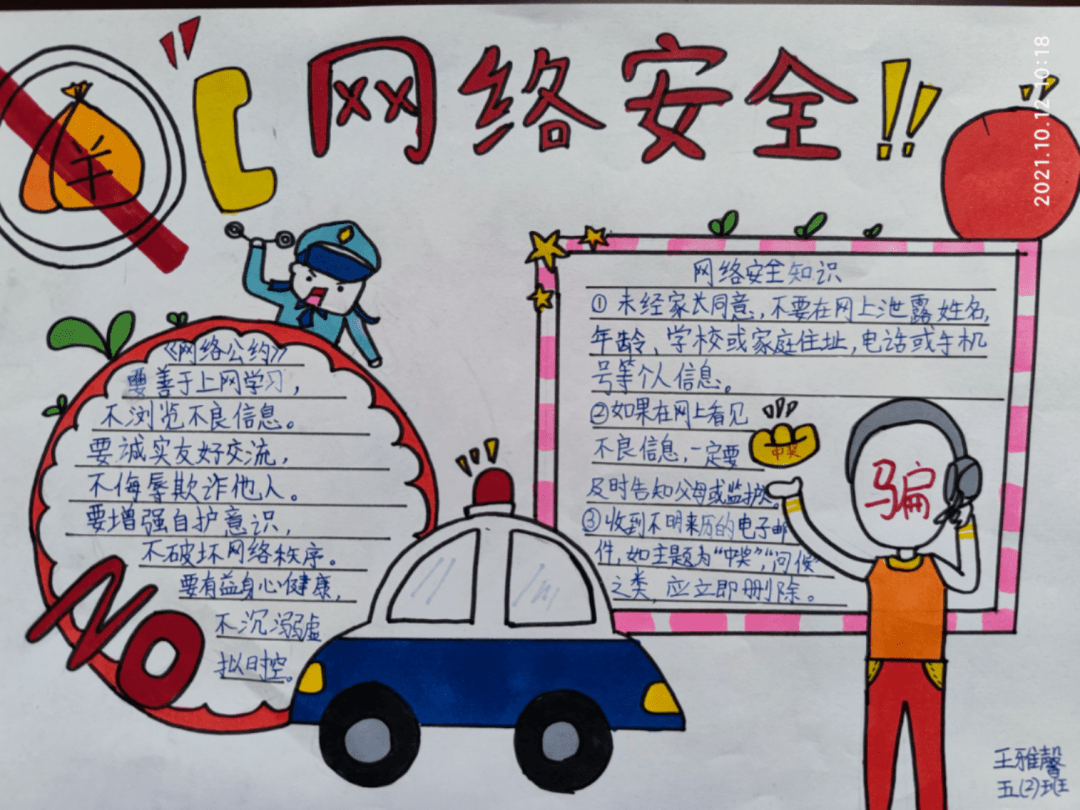 网络安全!!
2021.10.12 10:18
羊
《网络公约》
要善于上网学习，
不浏览不良信息。
要诚实友好交流，
不侮辱欺诈他人。
要增强自护意识，
不破坏网络秩序。
要有益身心健康，
不沉溺虚
拟时控。
NO
网络安全知识
①未经家长同意，不要在网上泄露姓名，
年龄、学校或家庭住址，电话或手机
号等个人信息。
②如果在网上看见
不良信息，一定要
及时告知父母或监护人。
③收到不明来历的电子邮
件，如主题为“中奖”，“问候”
之类，应立即删除。
中奖
骗
王雅馨
五(2)班